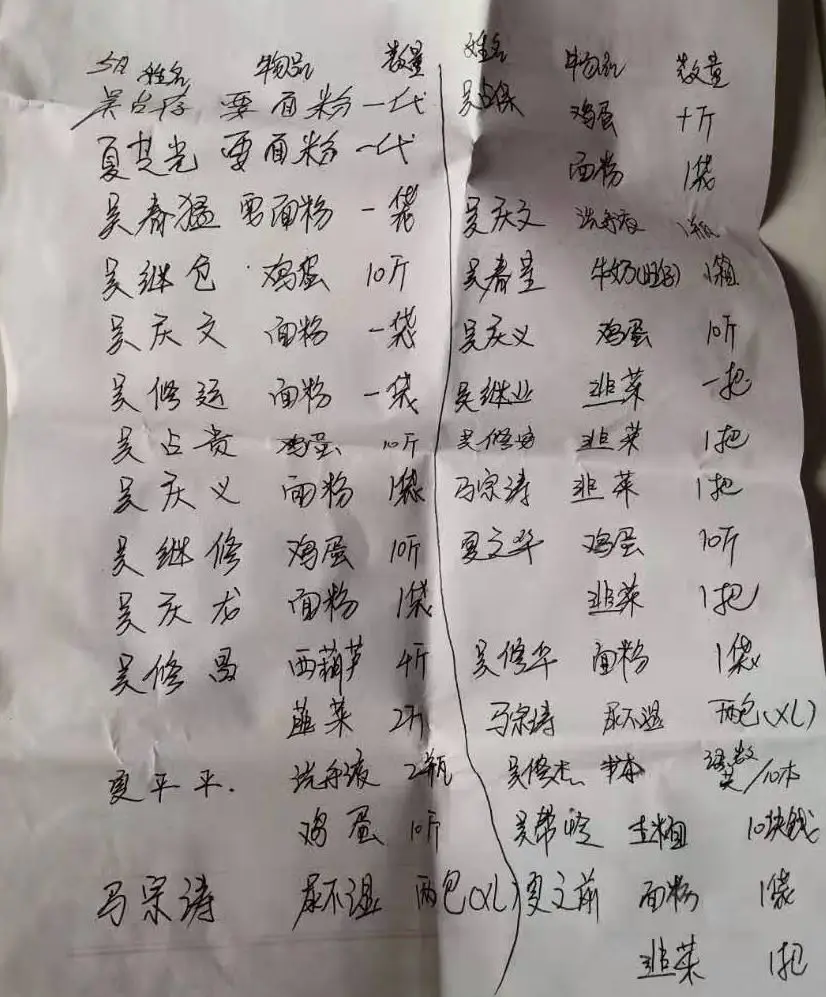 姓名 物品 数量
吴占存 要面粉 一代
夏芝光 要面粉 一代
吴春猛 要面粉 一袋
吴继仓 鸡蛋 10斤
吴庆文 面粉 一袋
吴修运 面粉 一袋
吴占贵 鸡蛋 10斤
吴庆义 面粉 1袋
吴继修 鸡蛋 10斤
吴庆龙 面粉 1袋
吴修昌 西葫芦 4斤
韭菜 2斤
夏平平. 洗手液 2瓶
鸡蛋 10斤
马宗涛 尿不湿 两包(XL)
姓名 物品 数量
吴占 鸡蛋 十斤
面粉 1袋
吴庆文 洗手液 1瓶
吴春星 牛奶(旺仔) 1箱
吴庆义 鸡蛋 10斤
吴继业 韭菜 一把
吴修 韭菜 1把
马宗涛 韭菜 1把
夏文华 鸡蛋 10斤
韭菜 1把
吴修华 面粉 1袋
马宗涛 尿不湿 两包(XL)
吴修杰 本 语数英/10本
吴帮 10块钱
夏文前 面粉 1袋
韭菜 1把